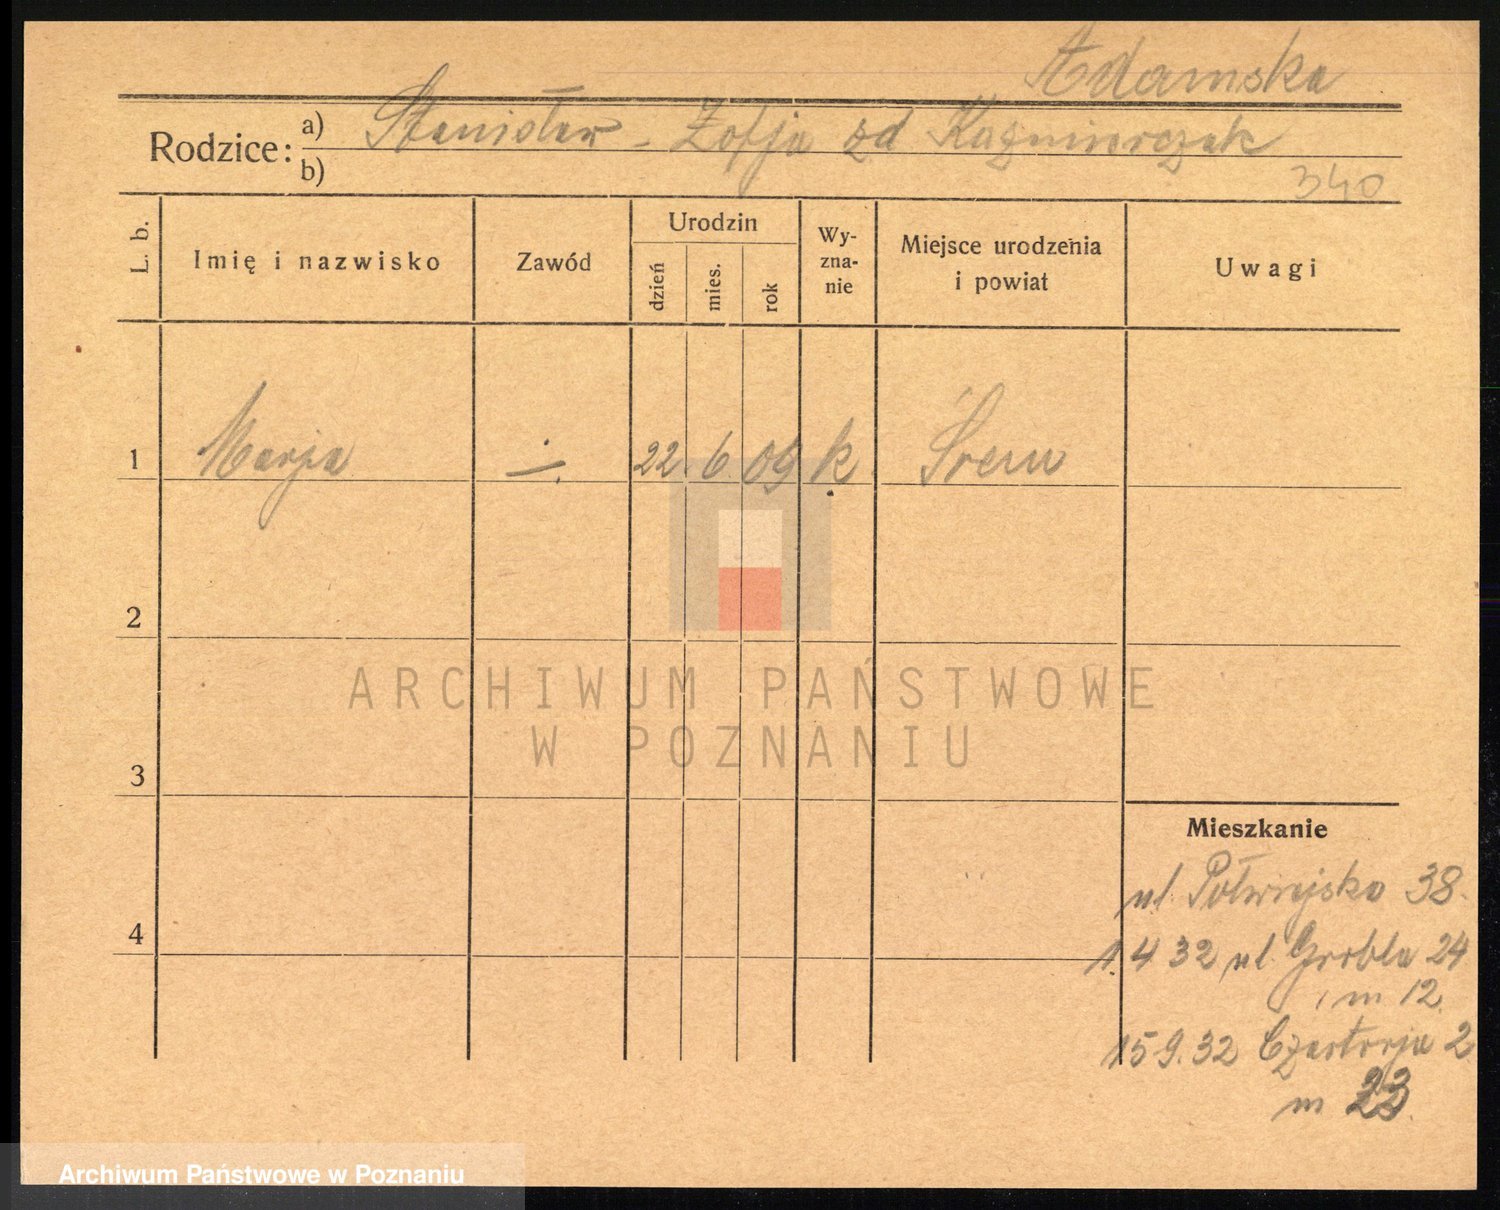 Adamska
Rodzice: a) Stanisław - Zofja zd Kaźmierczak
b)
340
L. b.
Imię i nazwisko
Zawód
Urodzin
dzień
mies.
rok
Wy-
zna-
nie
Miejsce urodzenia
i powiat
Uwagi
1 Marja 22. 6. 09 k Śrem
2
3
4
Mieszkanie
ul. Półwiejska 38.
1.4 32 ul. Grobla 24
m 12.
15 9.32 Czartorja 2
m 23.
ARCHIWUM PAŃSTWOWE
W POZNANIU
Archiwum Państwowe w Poznaniu